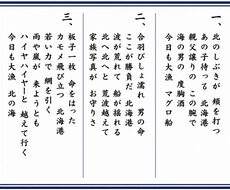 一、北のしぶきが 頬を打つ
あの子待ってる 北海港
親父譲りの この腕で
海の男の 度胸酒
今日も大漁 マグロ船
二、合羽びしょ濡れ 男の命
ここが勝負だ 北海港
波が荒れて 船が揺れる
北へ北へと 荒波越えて
家族写真が お守りさ
三、板子一枚 命をはった
カモメ飛び立つ 北海港
若い力で 網を引く
雨や嵐が 来ようとも
ハイヤハイヤーと 越えて行く
今日も大漁 北の海